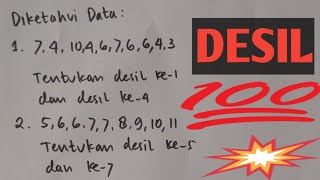 Diketahui Data:
1. 7,4,10,4,6,7,6,6,4,3
Tentukan desil ke-1
dan desil ke-4
2. 5,6,6,7,7,8,9,10,11
Tentukan desil ke-5
dan ke-7
DESIL
100